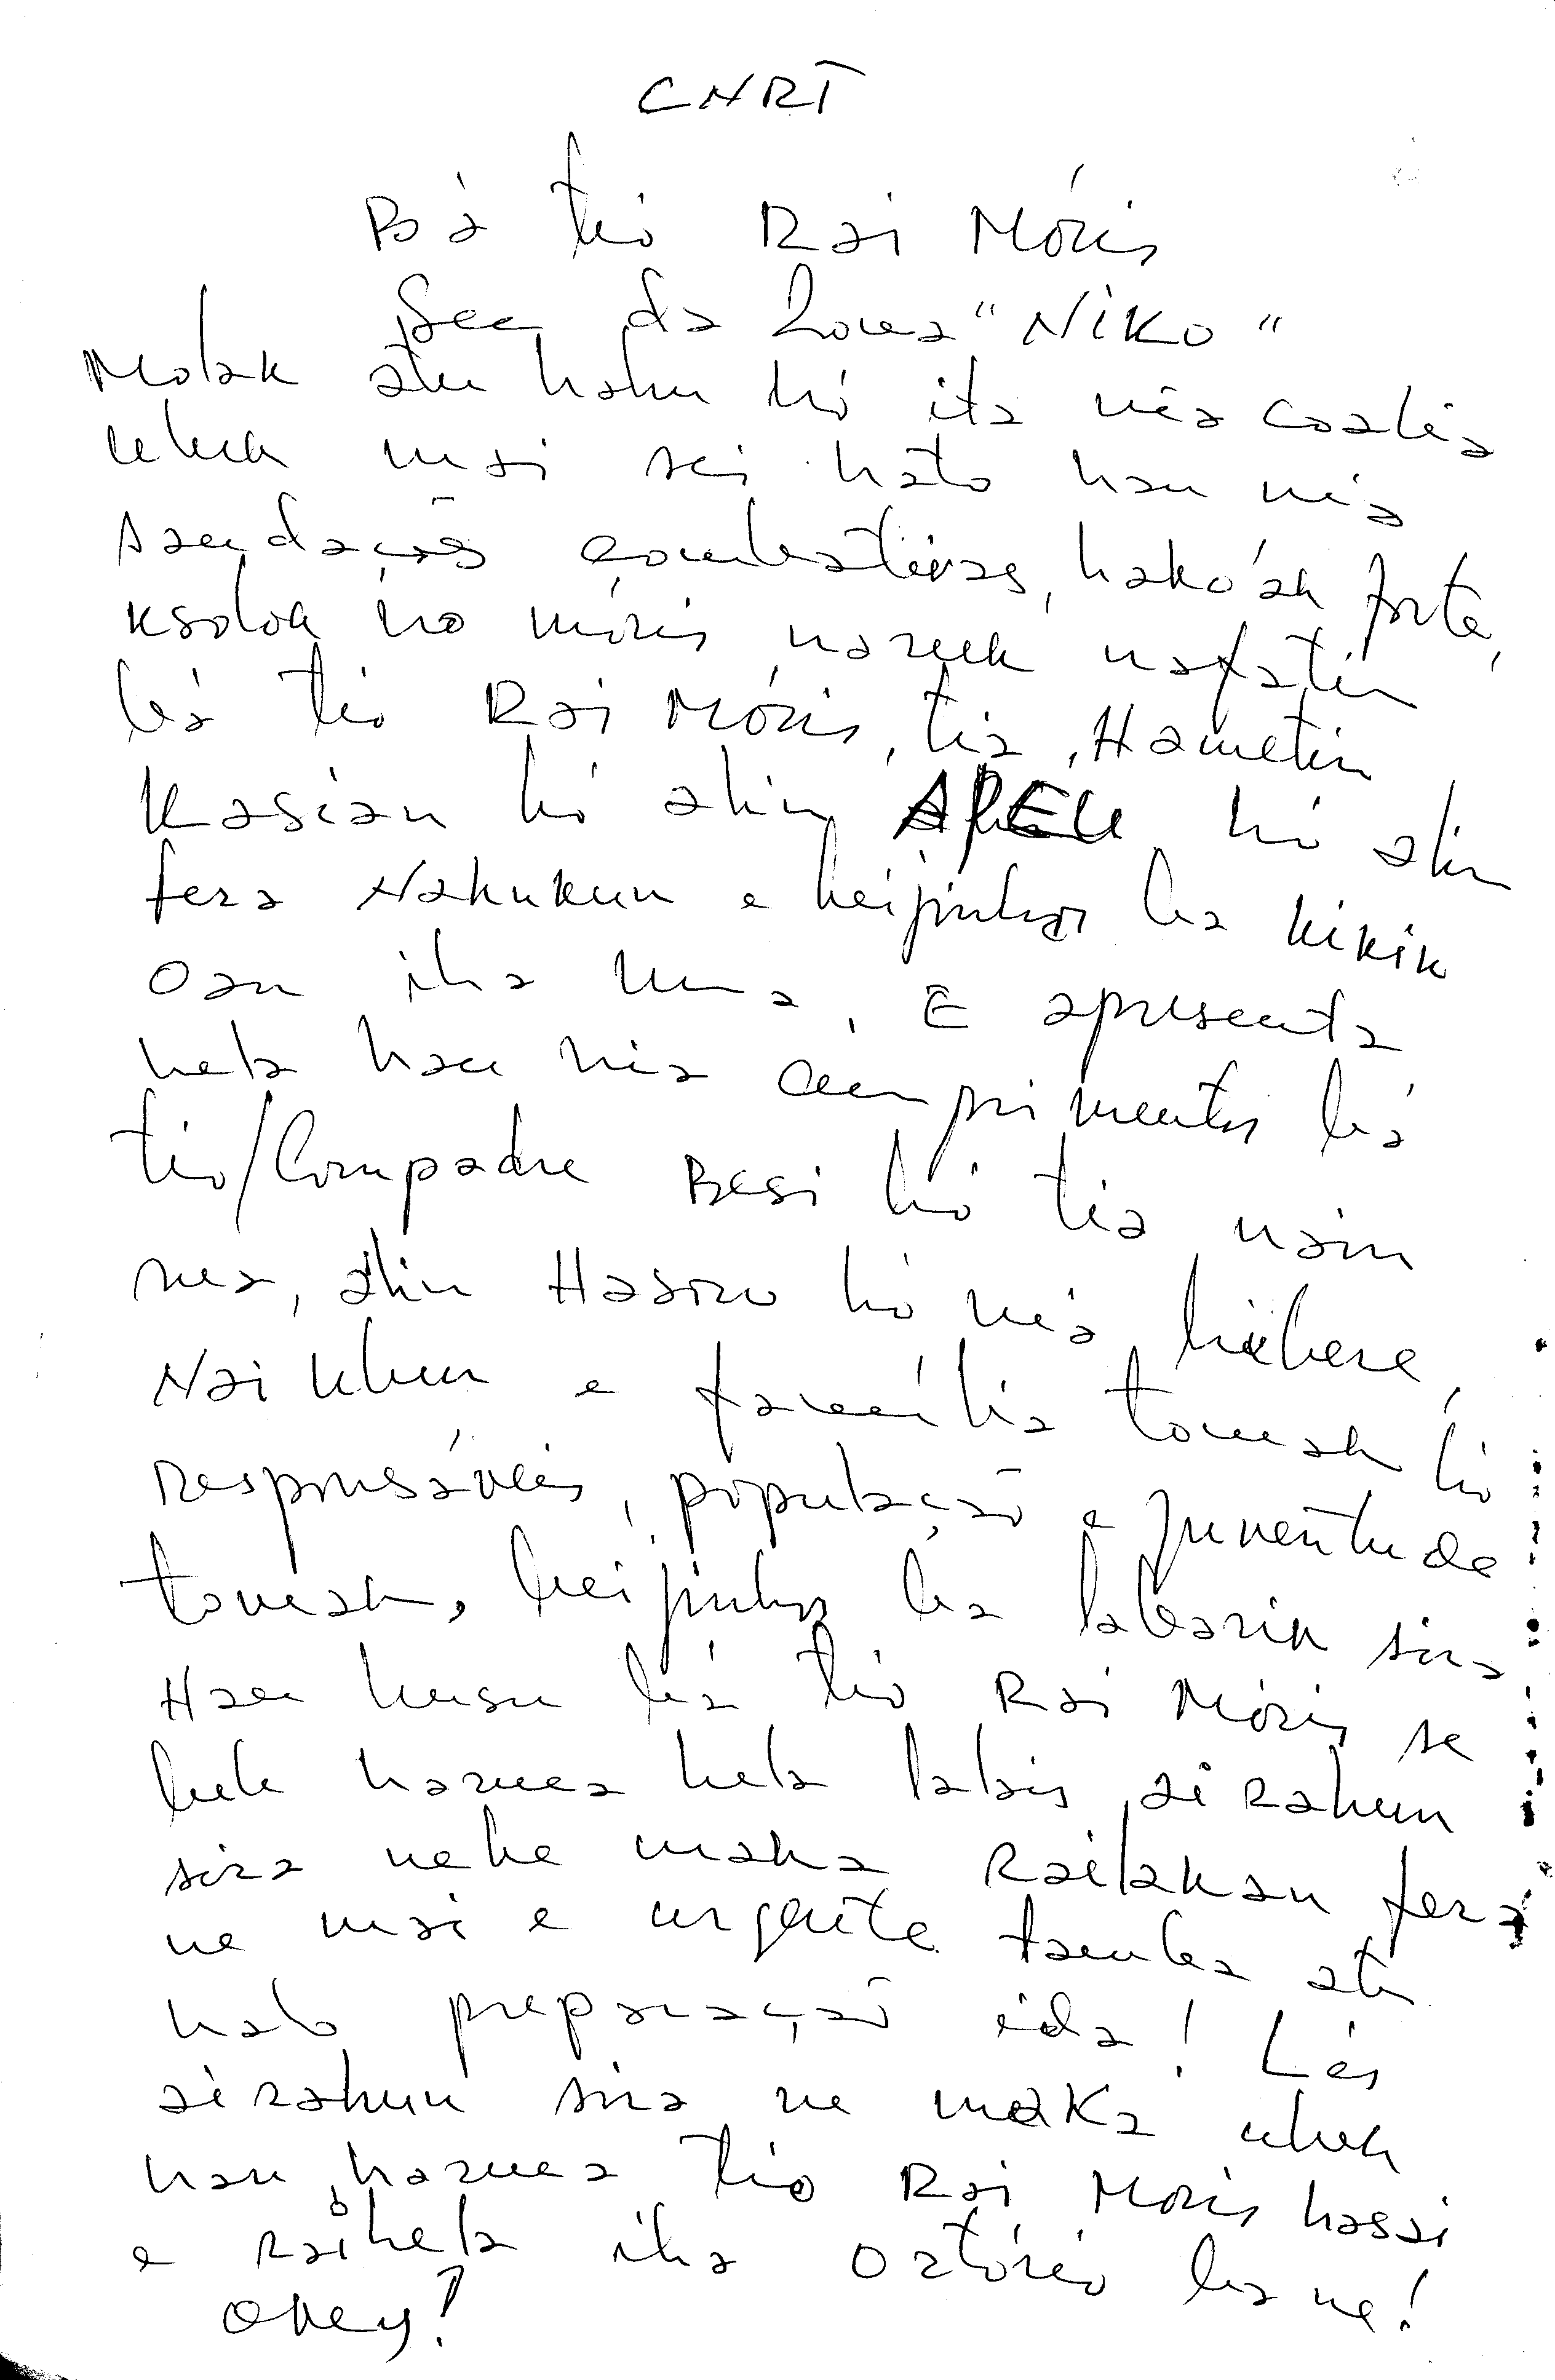 CNRT
Bá tio Rai Móris
Sec da Zona "NIKO"
Molok atu hahu hó ita nia coalia
uluk mai sei hato hau nia
saudações combativas, hakóak forte,
ksolok no móris naruk nafatin
bá tio Rai Móris, tia, Hametin
Kasian hó alin APEU hó alin
fera Nakukun e beijinhos ba kikik
oan iha uma. E apresenta
hela hau nia cumprimentos bá
tio/Compadre Besi hó tia nain
rua, alin Hasoru hó nia
Nai ulun e família tomak hó
responsáveis, população e juventude
tomak, beijinhos ba labarik sira
Hau husu bá tio Rai Móris se
bele haruka hela lalais ai rahun
sira nebe maka Railakan fera
ne mai e urgente tamba atu
halo preparação ida! Liás
ai rahun sira ne maka uluk
hau haruka tio Rai Moris hasai
e rai hela iha oatório ba ne!
Okey!